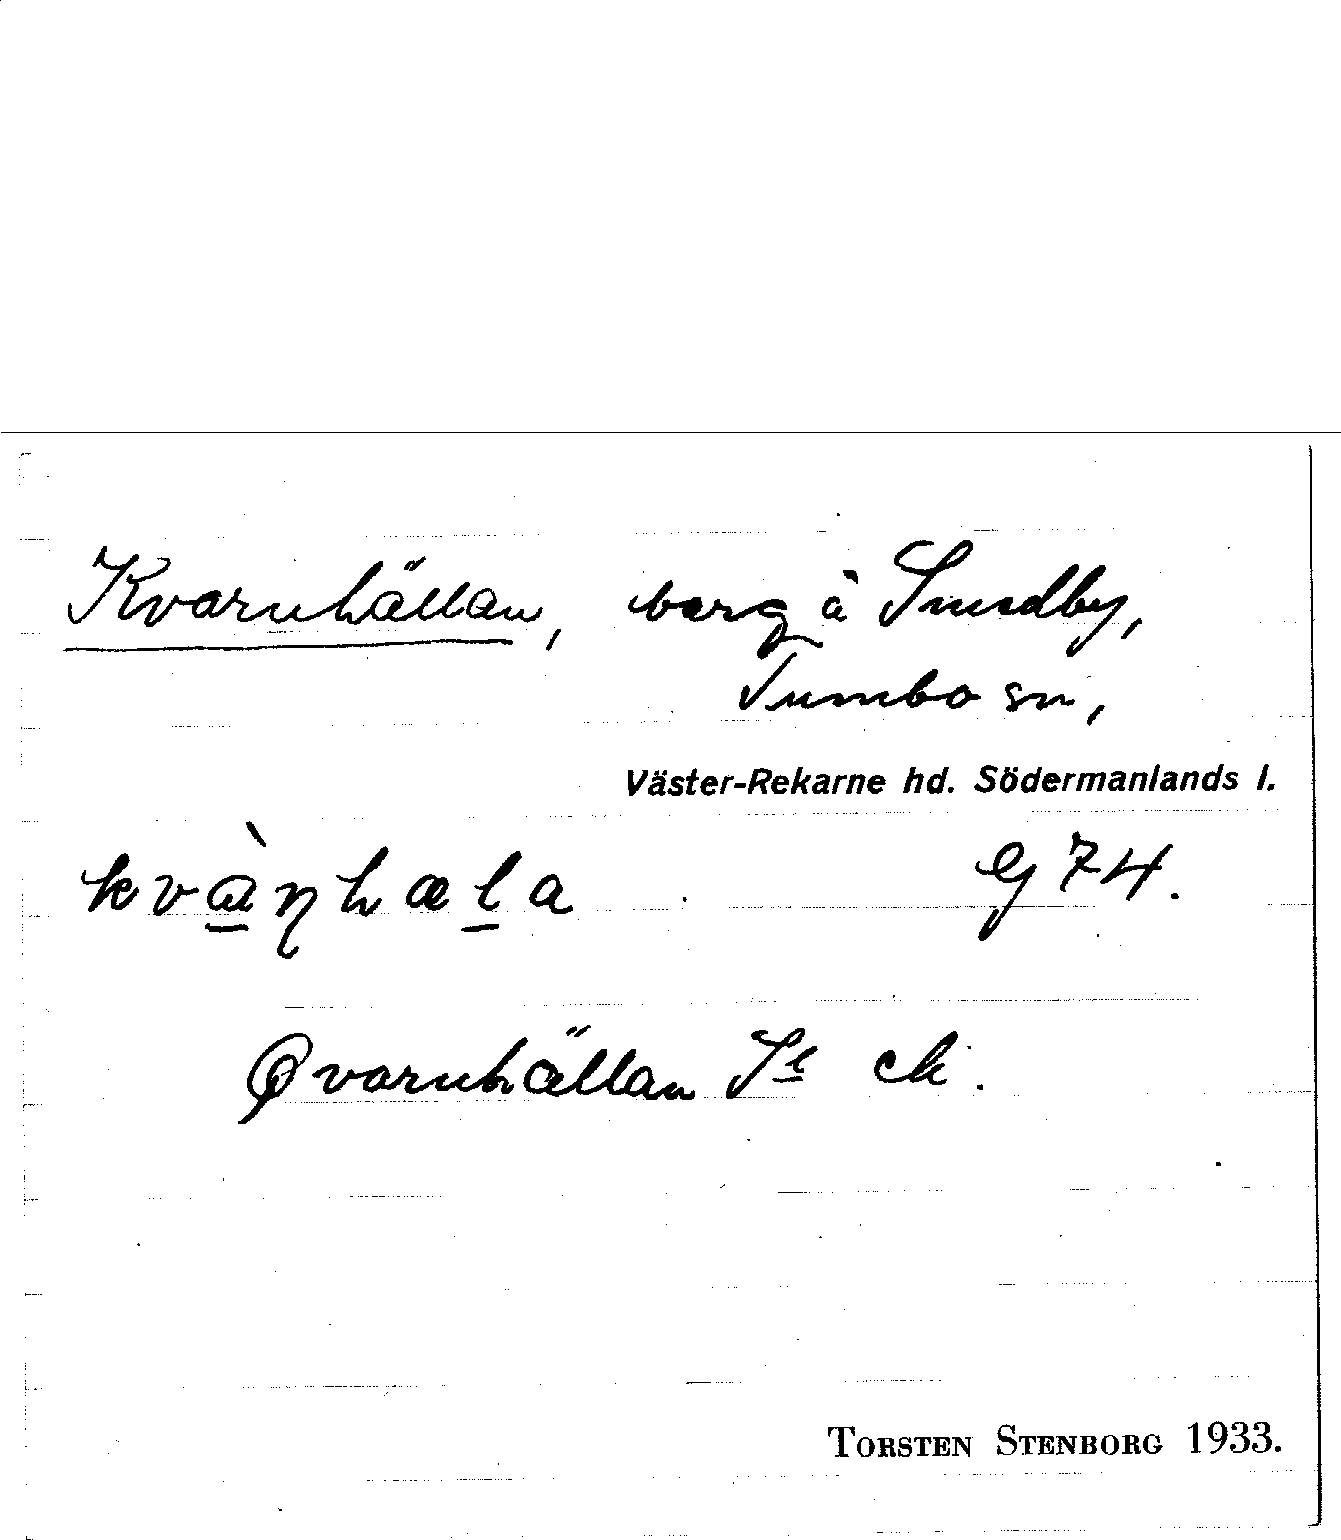 Kvarnhällan, berg å Sundby,
Tumbo sn,
Väster-Rekarne hd. Södermanlands l.
kvàŋhæla G 74.
Qvarnhällan
TORSTEN STENBORG 1933.